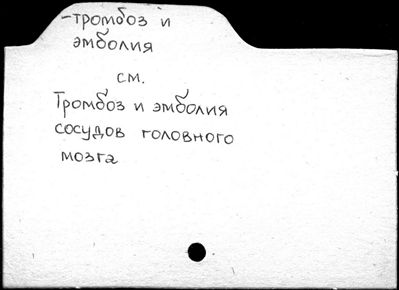 -тромбоз и
эмболия
см.
Тромбоз и эмболия
сосудов головного
мозга